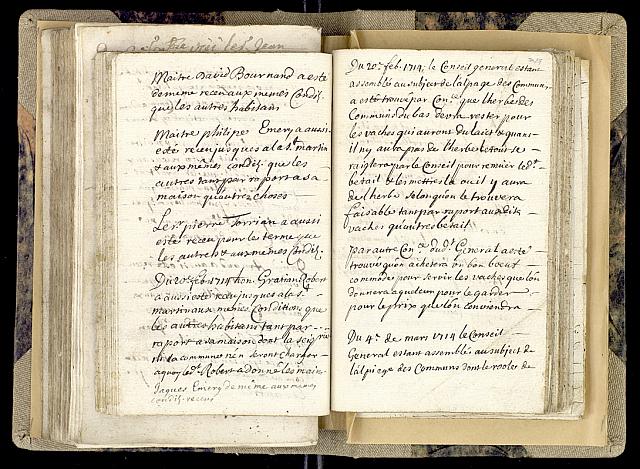 Maitre David Bournand a este
de meme receu aux memes Condit.
que les autres habitans
Maitre philipe Emery a aussi
esté receu jusques a la s.t martin
et aux memes condit. que les
autres tant par raport a sa
maison qu'autres choses
Le s.r pierre Torrian a aussi
esté receu pour le terme que
les autres et aux memes Condit.
Du 20.e feb. 1714 hon. Gratian Robert
a aussi esté receu jusques a la s.t
martin aux memes Conditions que
les autres habitans tant par
raport a sa maison dont la seig.rie
ni la commune n'en seront chargée
a quoy led.t Robert a donné les main
Jaques Emery de meme aux memes
condit. receu
Du 20.e feb. 1714, le Conseil general estant
assemblé au subjet de l'alpage des Communs
a esté trouvé par Con.e que l'herbe des
Communs du bas devra rester pour
les vaches qui auront du laict et quans
il ny aura pas de l'herbe le tout se
raiglera par le Conseil pour remuer led.t
betail et les mettre la ou il y aura
de l'herbe selon qu'on le trouvera
faisable tant par raport aux dits
vaches qu'autre betail
par autre Con.e dud.t General a esté
trouvé qu'on achetera un bon boeuf
commode pour servir les vaches que l'on
donnera a quelcun pour le garder
pour le prix que l'on conviendra
Du 4.e de mars 1714 le Conseil
General estant assemblé au subjet de
l'alpiege des Communs dont les rooles de